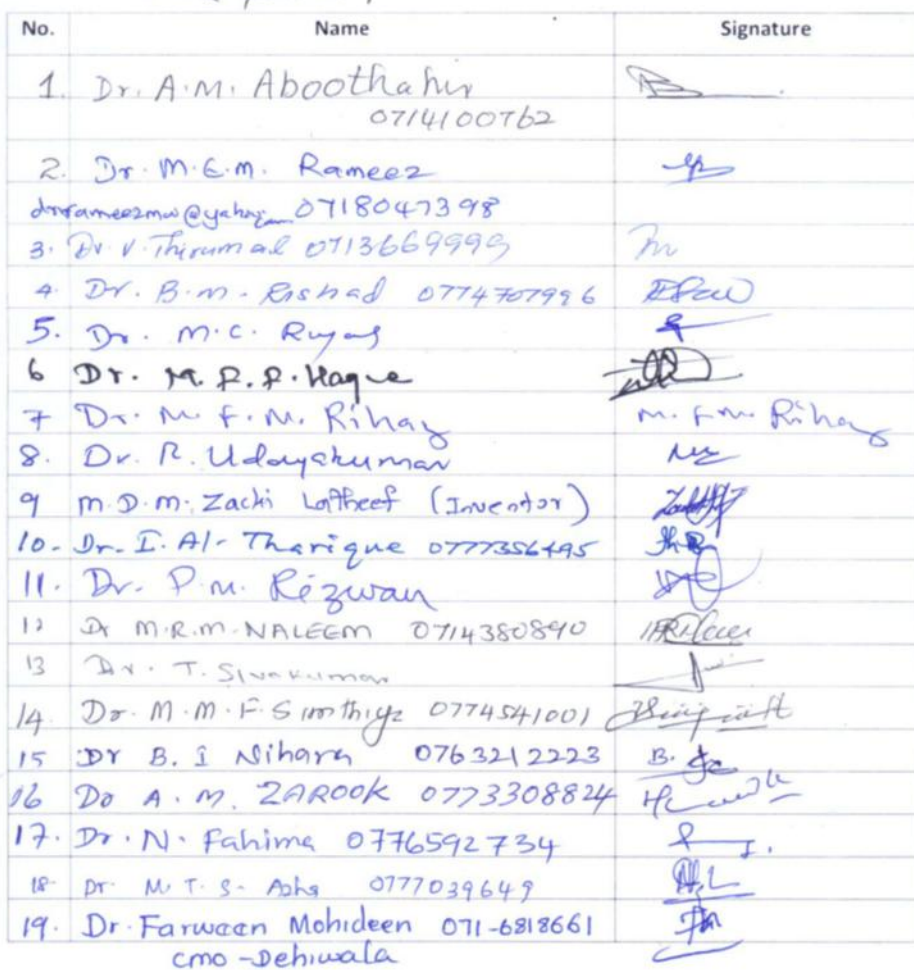 No. Name Signature
1. Dr. A.M. Aboothahir
0714100762
2. Dr. M.E.M. Rameez
0718047398
3. Dr V. Thirumal 0713669999
4 Dr. B.M. Rishad 0774707996
5. Dr. M.C. Ruyas
6 Dr. M.R.R. Haque
7 Dr. M. F. M. Rihaz M. F. M. Rihaz
8. Dr. R. Udayakumar
9 M.D.M. Zacki Lattheef (Inventor)
10- Dr. I. Al-Tharique 0777356495
11. Dr. P.M. Rézwan
12 Dr M.R.M. NALEEM 0714380890
13 Dr. T. Sivakumar
14. Dr. M.M.F. 0774541001
15 Dr B. I Nihara 0763212223
16 Dr A. M. ZAROOK 0773308824
17. Dr. N. Fahima 0776592734
18- Dr. M. T. S. Asha 0777039649
19. Dr. Farween Mohideen 071-6818661
CMO - Dehiwala